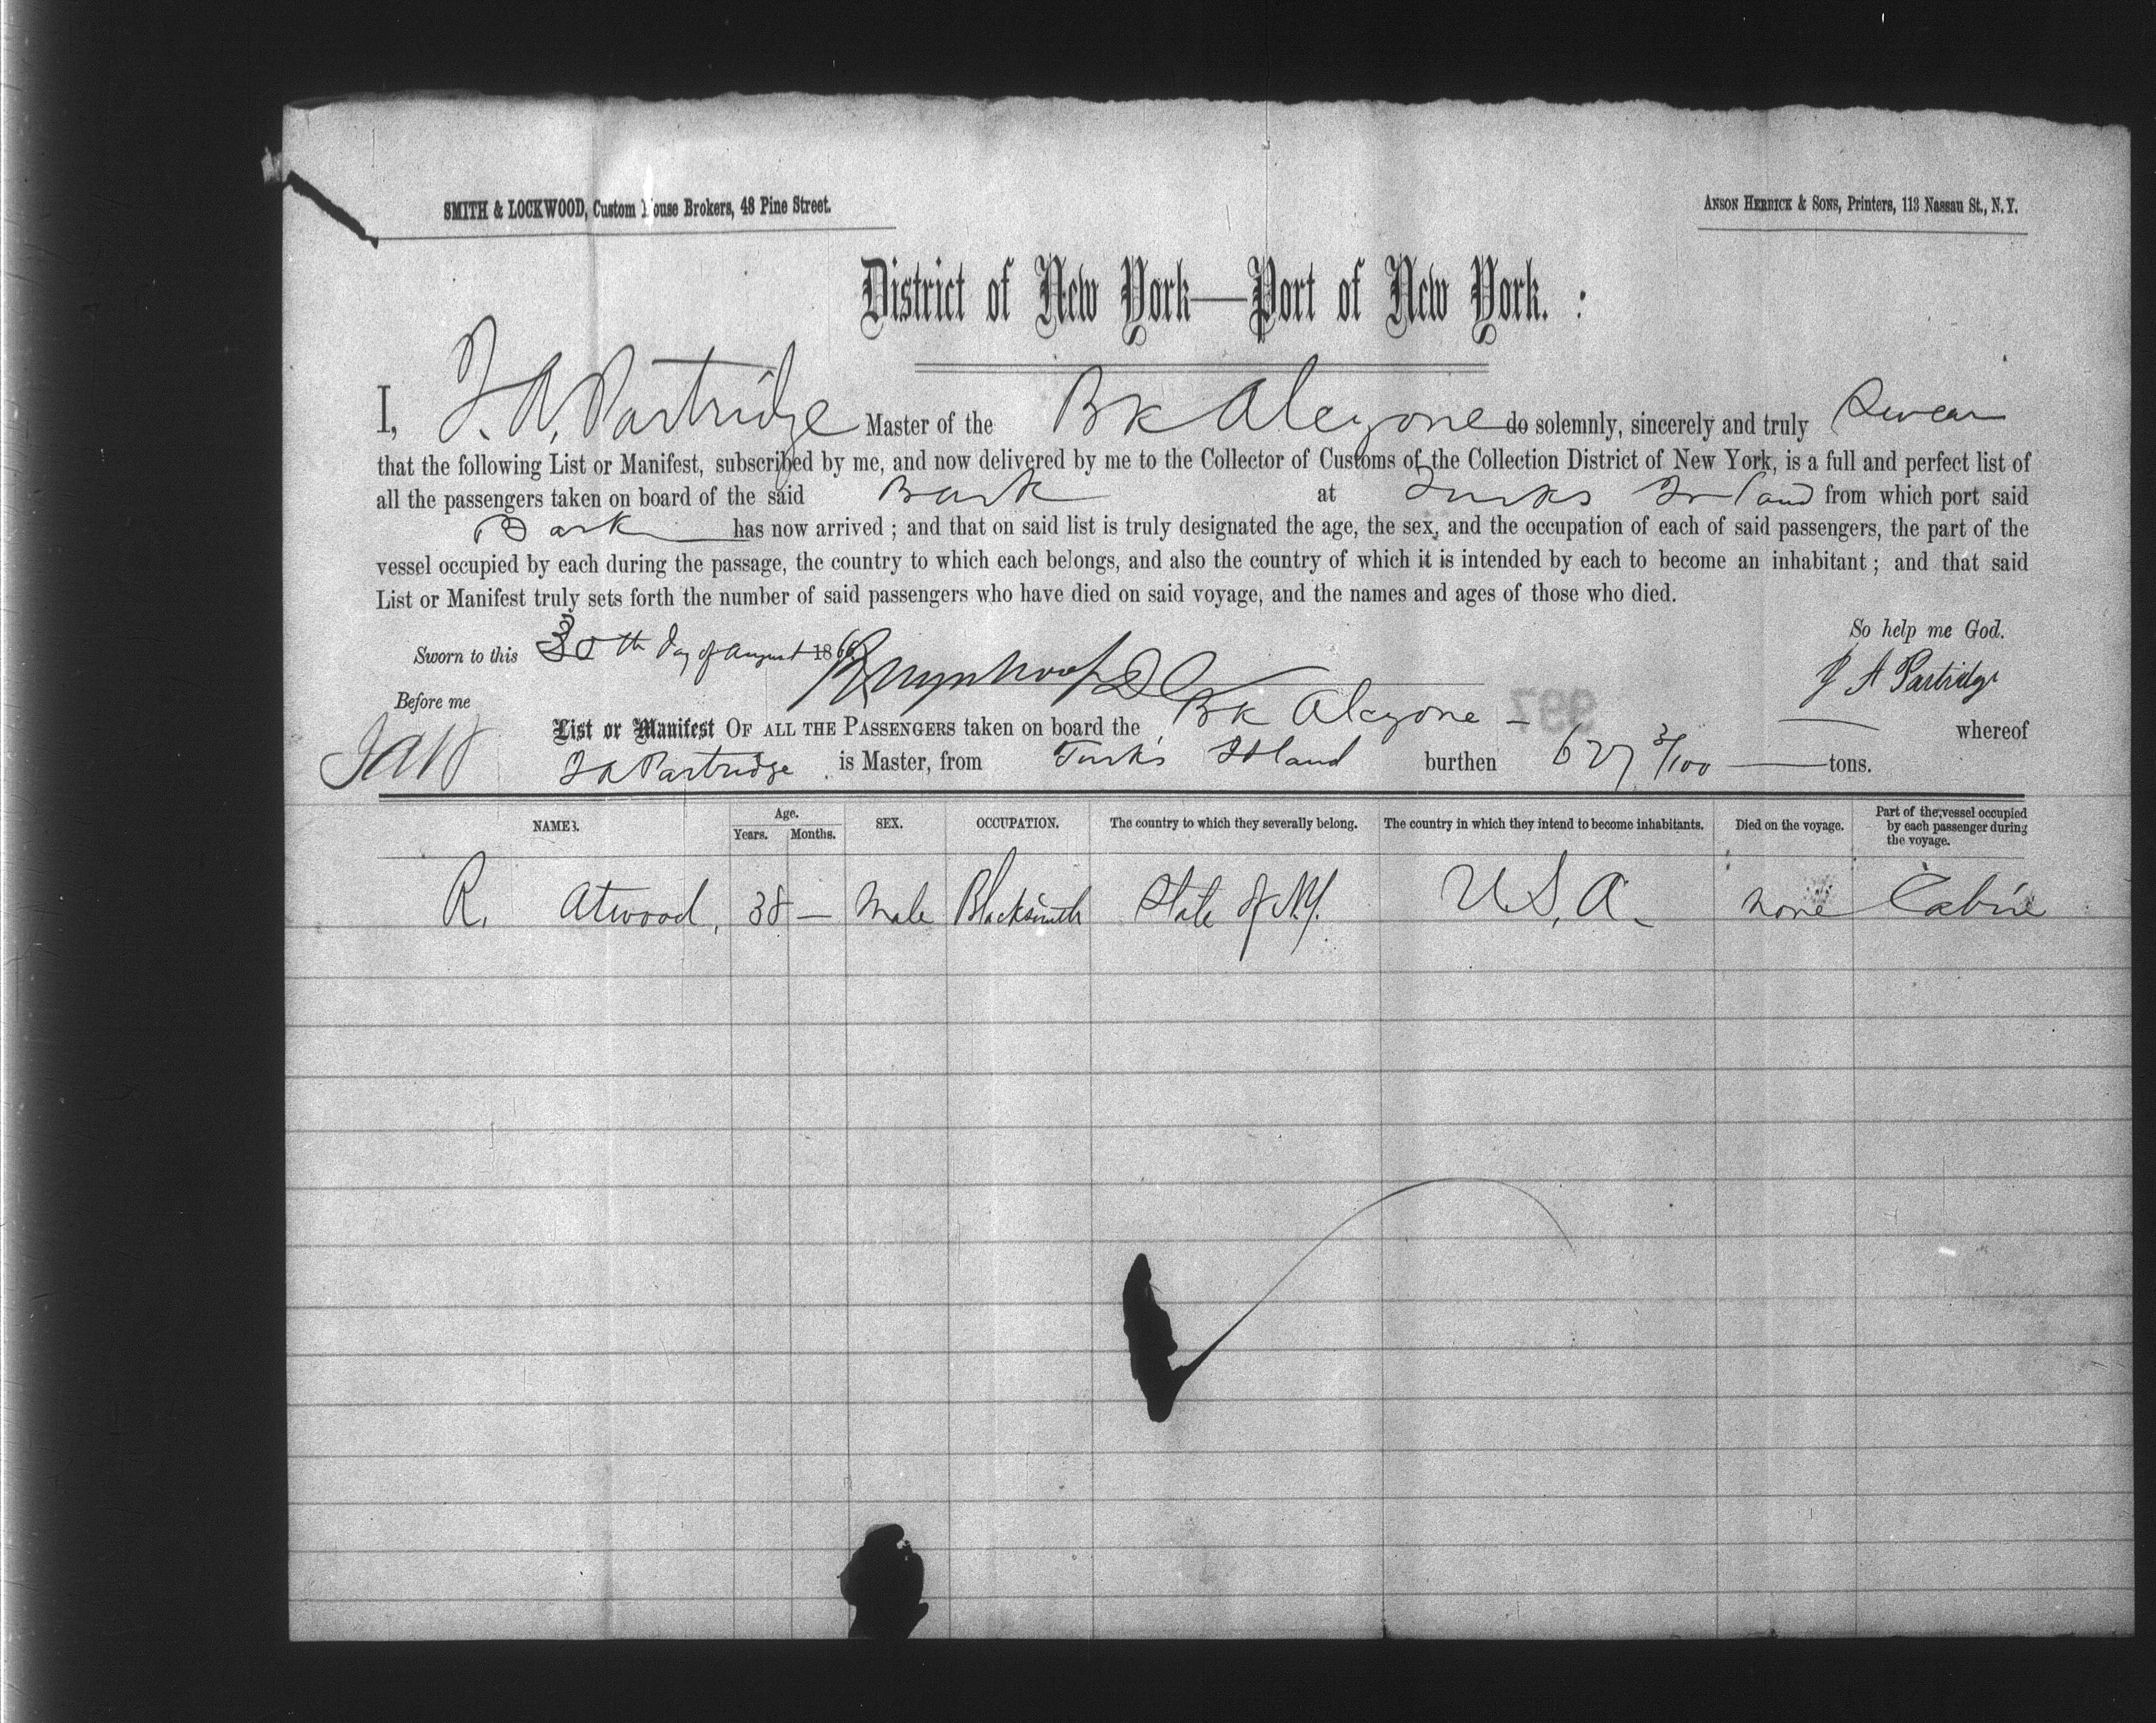 SMITH & LOCKWOOD, Custom House Brokers, 48 Pine Street.
ANSON HERRICK & SONS, Printers, 113 Nassau St., N.Y.
District of New York—Port of New York. :
I, J. A. Partridge Master of the Bk Alcyone do solemnly, sincerely and truly Swear
that the following List or Manifest, subscribed by me, and now delivered by me to the Collector of Customs of the Collection District of New York, is a full and perfect list of
all the passengers taken on board of the said Bark at Turks Island from which port said
Bark has now arrived ; and that on said list is truly designated the age, the sex, and the occupation of each of said passengers, the part of the
vessel occupied by each during the passage, the country to which each belongs, and also the country of which it is intended by each to become an inhabitant ; and that said
List or Manifest truly sets forth the number of said passengers who have died on said voyage, and the names and ages of those who died.
So help me God.
Sworn to this 30th day of August 186
J A Partridge
Before me
997
List or Manifest OF ALL THE PASSENGERS taken on board the Bk Alcyone — whereof
J A Partridge is Master, from Turk's Island burthen 627 3/100 tons.
NAMES. Age. Years. Months. SEX. OCCUPATION. The country to which they severally belong. The country in which they intend to become inhabitants. Died on the voyage. Part of the vessel occupied by each passenger during the voyage.
R. Atwood, 38 — Male Blacksmith State of N.Y. U.S.A. None Cabin